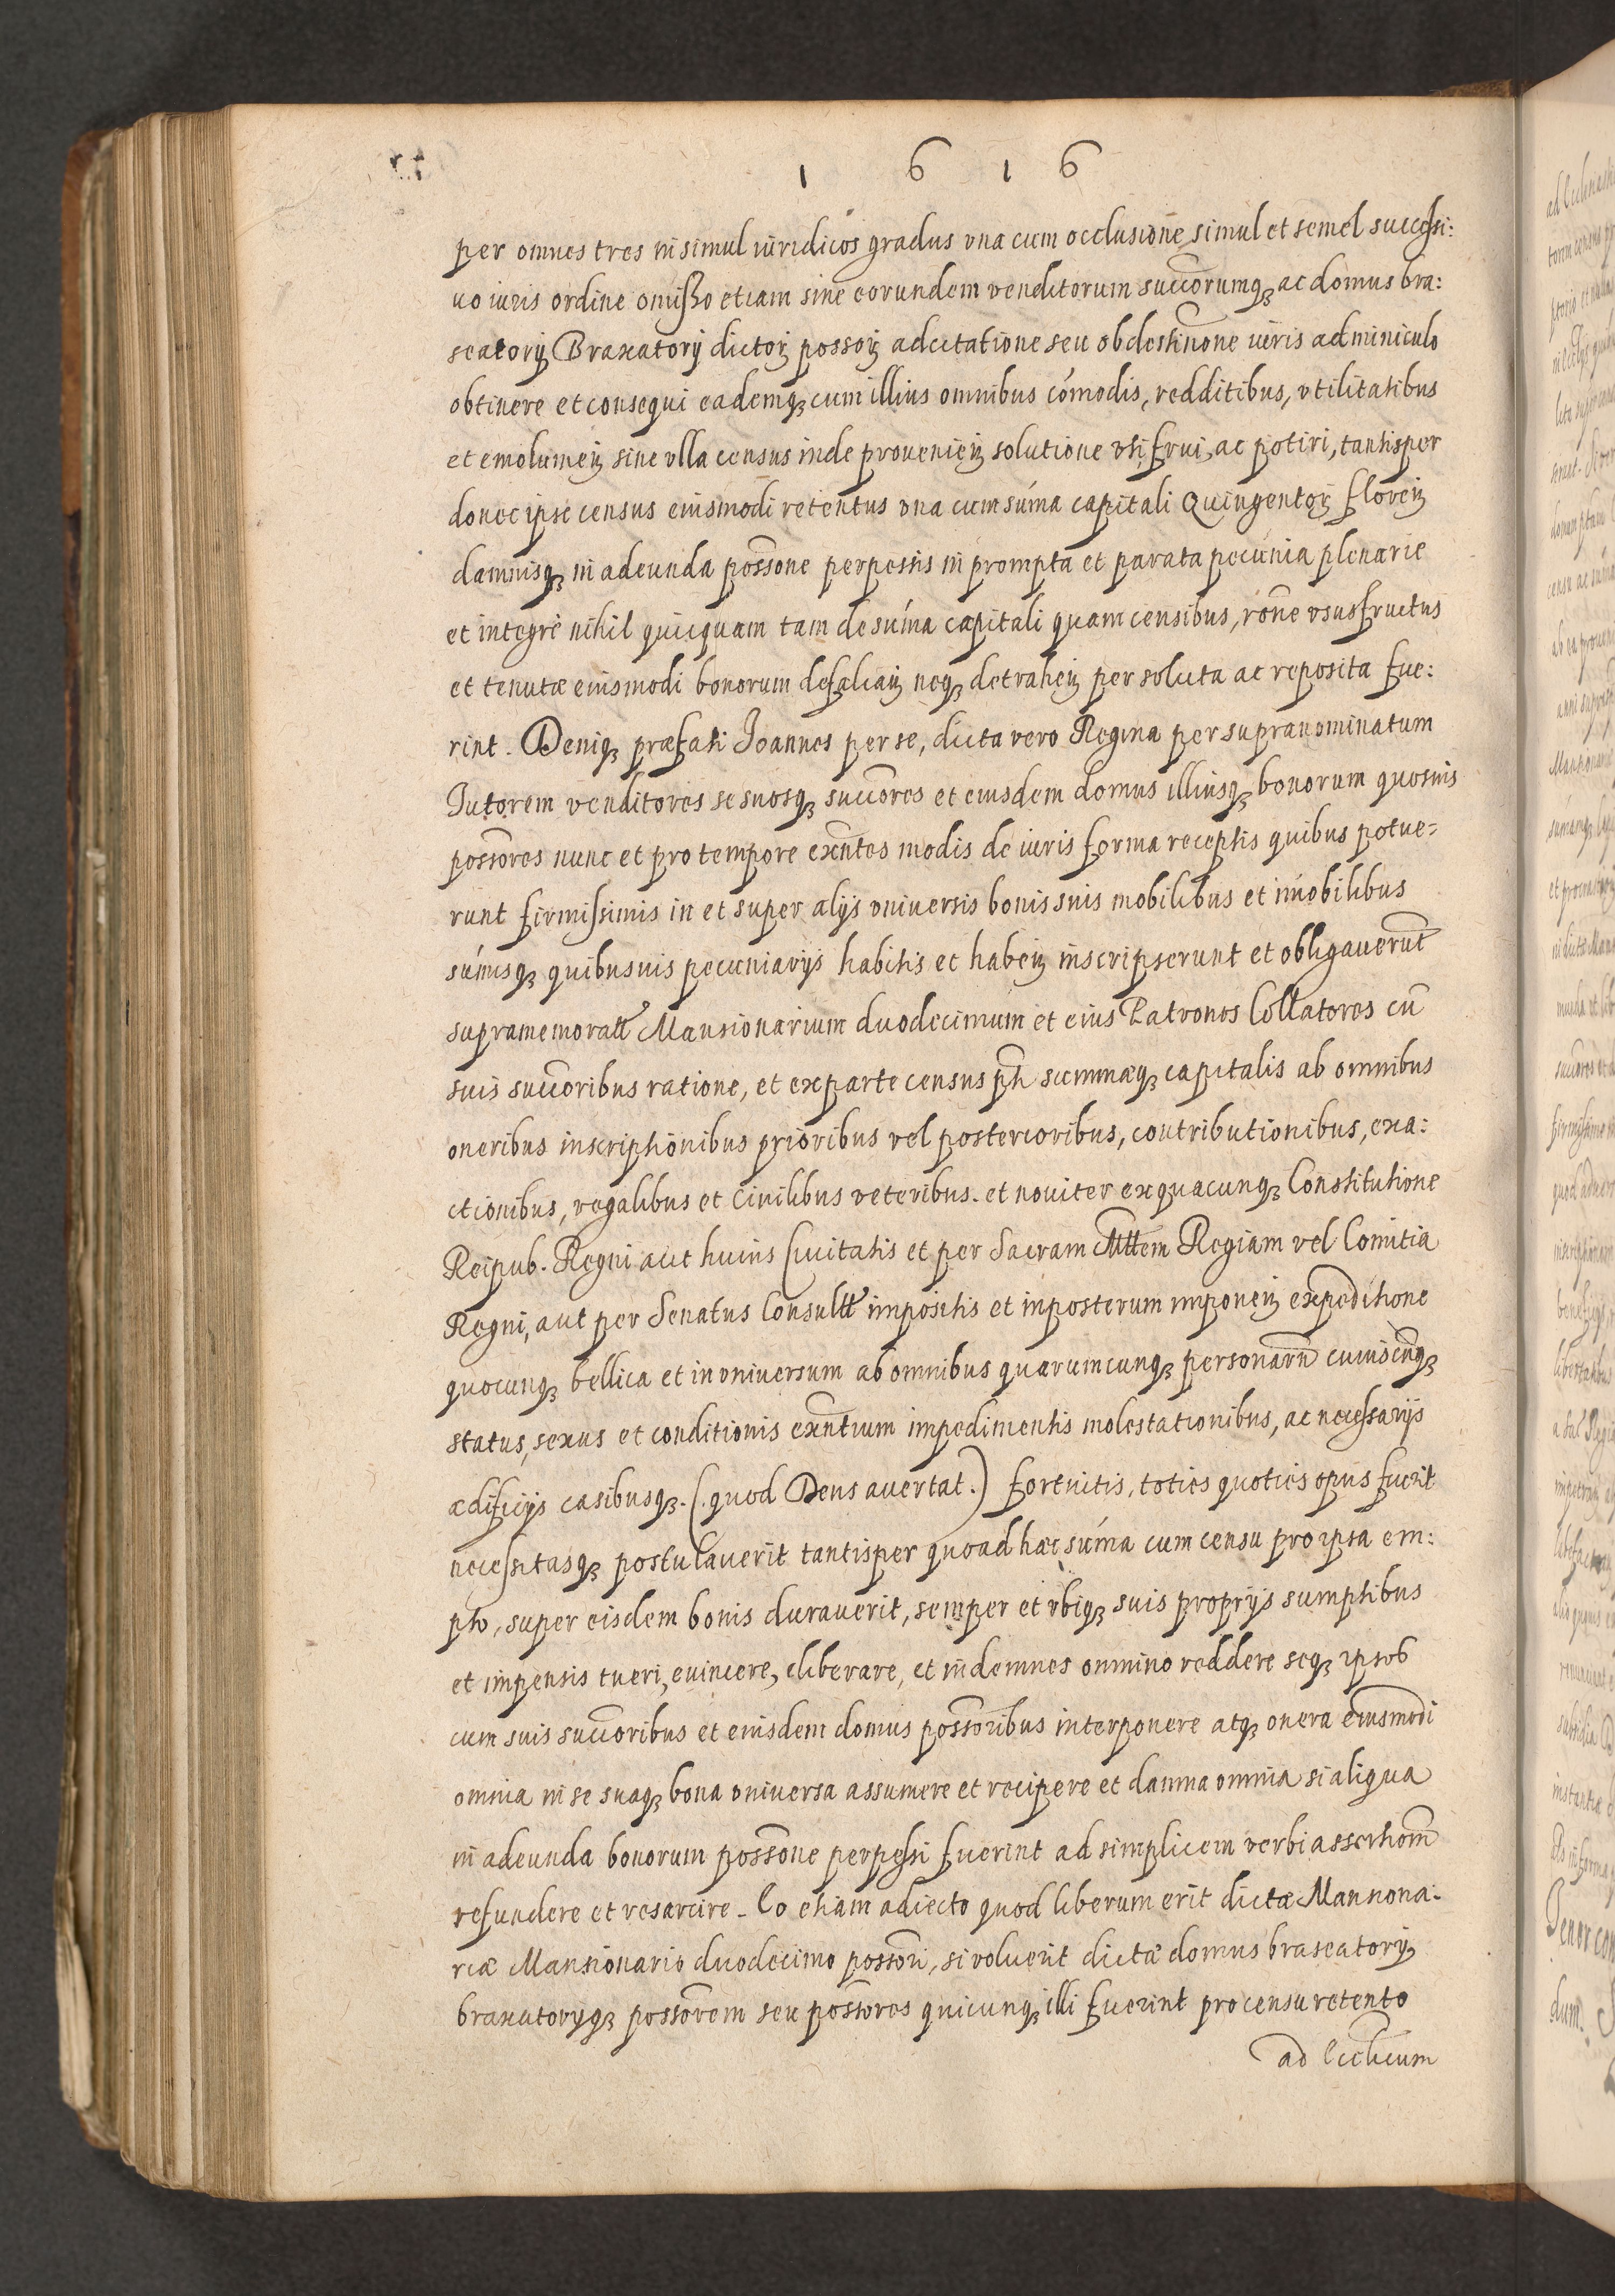 1 6 1 6
per omnes tres in simul iuridicos gradus vna cum occlusione simul et semel succeſsi:
uo iuris ordine omiſso etiam sine eorundem venditorum succorumqꝫ ac domus bra:
seatorij Braxatorij dictoꝝ possoꝝ adcitatione seu obdestinone iuris adminiculo
obtinere et consequi eademqꝫ cum illius omnibus cómodis, redditibus, vtilitatibus
et emolumeñ sine vlla census inde provenieñ solutione vti frui, ac potiri, tantisper
donec ipse census eiusmodi retentus vna cum súma capitali Quingentoꝝ floreñ
damnisqꝫ in adeunda possone perpessis in prompta et parata pecunia plenarie
et integrè nihil quicquam tam de súma capitali quam censibus, rone vsusfructus
et tenutæ eiusmodi bonorum defalcañ neqꝫ detraheñ persoluta ac reposita fue:
rint. Deniqꝫ præfati Joannes per se, dicta vero Regina per supranominatum
Tutorem venditores se suosqꝫ succores et eiusdem domus illiusqꝫ bonorum quosuis
possores nunc et pro tempore exntes modis de iuris forma receptis quibus potue-
runt firmiſsimis in et super alijs vniversis bonis suis mobilibus et imobilibus
súmisqꝫ quibusuis pecuniarijs habitis et habeñ inscripserunt et obligaverut
supramemoratt Mansionarium duodecimum et eius Patronos Collatores cu
suis succoribus ratione, et ex parte census ptt summæqꝫ capitalis ab omnibus
oneribus inscriptionibus prioribus vel posterioribus, contributionibus, exa:
ctionibus, regalibus et Civilibus veteribus. et noviter ex quacunqꝫ Constitutione
Reipub. Regni aut huius Civitatis et per Sacram Mttem Regiam vel Comitia
Regni, aut per Senatus Consultt impositis et inposterum imponeñ expeditione
quocunqꝫ bellica et in vniversum ab omnibus quarumcunqꝫ personaru cuiuscuqꝫ
status, sexus et conditionis exntium impedimentis molestationibus, ac neceſsarijs
ædificijs casibusqꝫ. (. quod Deus avertat .) fortuitis, toties quoties opus fuerit
neceſsitasqꝫ postulaverit tantisper quoad hæc súma cum censu pro ipsa em:
pto, super eisdem bonis duraverit, semper et vbiqꝫ suis proprijs sumptibus
et impensis tueri, evincere, eliberare, et indemnes omnino reddere seqꝫ ipsos
cum suis succoribus et eiusdem domus possoribus interponere atqꝫ onera eiusmodi
omnia in se suaqꝫ bona vniversa assumere et recipere et damna omnia si aliqua
in adeunda bonorum possone perpeſsi fuerint ad simplicem verbi assertiom
refundere et resarcire. Eo etiam adiecto quod liberum erit dictæ Mansiona:
riæ Mansionario duodecimo possori, si voluerit dictæ domus braseatorij
braxatorijqꝫ possorem seu possores quicunqꝫ illi fuerint pro censu retento
ad Ecclicum